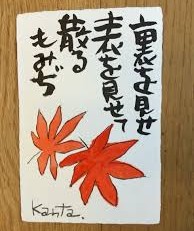 裏を見せ
表を見せて
散る
もみぢ
Kanta.